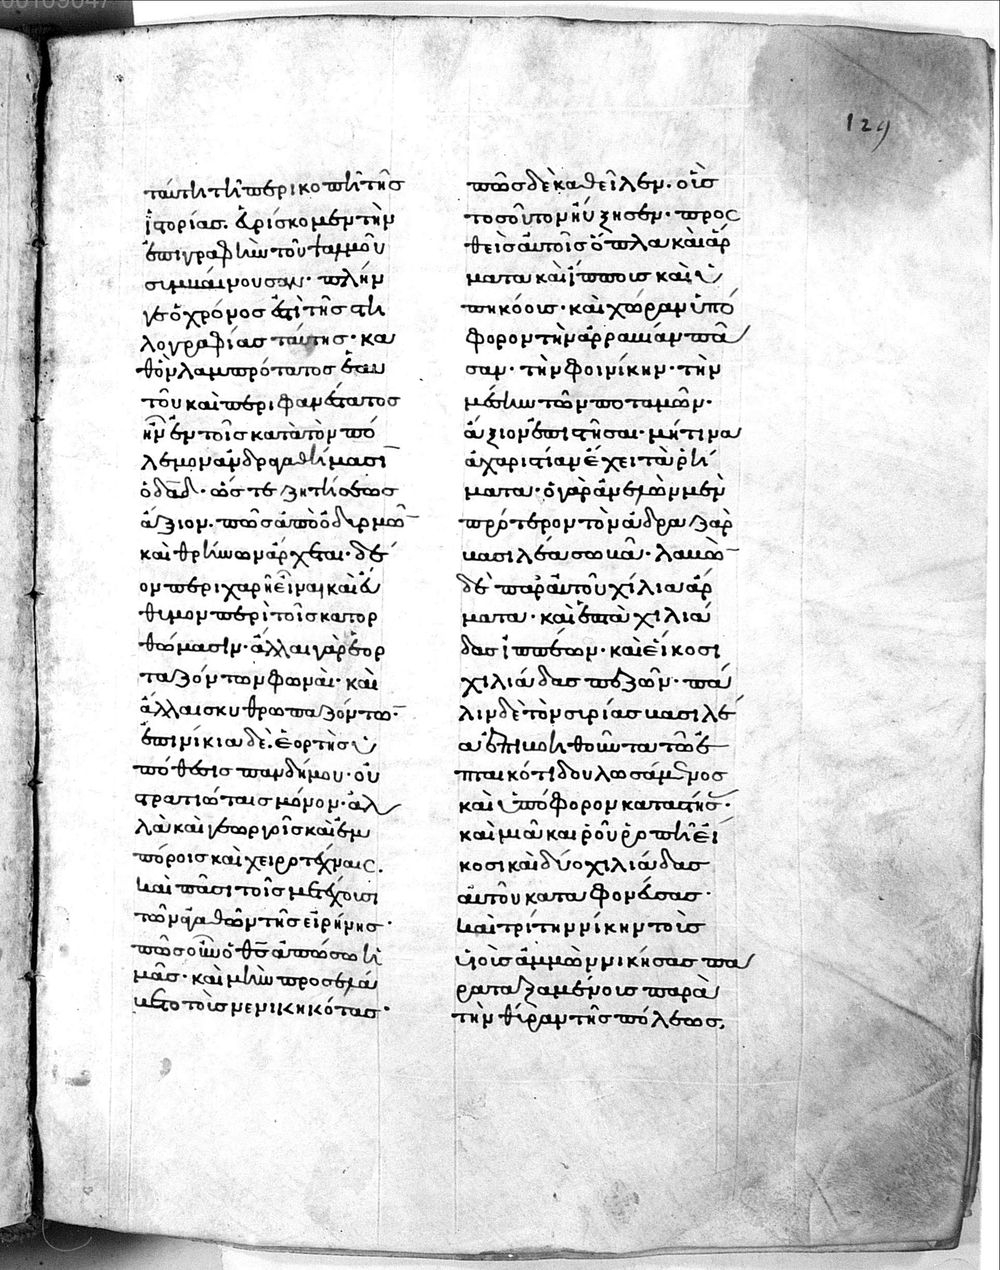 129
ταύτη τῆ περικοπῆ τῆς
ἱστορίας. εὑρίσκομεν τὴν
ἐπιγραφὴν τοῦ ψαλμοῦ
συμβαίνουσαν· πλὴν
γε ὁ χρόνος ἐπὶ τῆς στη
λογραφίας ταύτης· κα
θ' ὃν λαμπρότατος ἑαυ
τοῦ καὶ περιφανέστατος
ἦν ἐν τοῖς κατὰ τὸν πό
λεμον ἀνδραγαθήμασι
ὁ δαδ· ὥς τε ζητήσεως
ἄξιον. πῶς ἀπὸ ὀδυρμῶν
καὶ θρήνων ἄρχεται· δέ
ον περιχαρῆ εἶναι καὶ εὔ
θυμον περὶ τοῖς κατορ
θώμασιν· ἄλλαι γὰρ ἑορ
ταζόντων φωναὶ· καὶ
ἄλλαι σκυθρωπαζόντων·
ἐπινίκια δὲ. ἑορτῆς ὑ
πόθεσις πανδήμου· οὐ
στρατιώταις μόνον· ἀλ
λὰ καὶ γεωργοῖς καὶ ἐμ
πόροις καὶ χειροτέχναις.
καὶ πᾶσι τοῖς μετέχουσι
τῶν ἀγαθῶν τῆς εἰρήνης·
πῶς οὖν ὁ θς ἀπώσω ἡ
μᾶς· καὶ μὴν προσεβά
λετο τοὺς νενικηκότας·
πῶς δὲ καθεῖλεν. οἷς
τοσοῦτον ηὔξησεν· προς
θεὶς αὐτοῖς ὅπλα καὶ ἅρ
ματα καὶ ἵπποις καὶ ὑ
πηκόοις· καὶ χώραν ὑπό
φορον τὴν ἀρραβίαν πᾶ
σαν· τὴν φοινίκην· τὴν
μέσην τῶν ποταμῶν·
ἄξιον ἐπιστῆσαι· μή τινα
ἀχαριστίαν ἔχει τὰ ῥή
ματα· ὁ γὰρ ἀνελὼν μὲν
πρότερον τὸν ἀδραζὰρ
βασιλέα σωβᾶ· λαβὼν
δὲ παρ' αὐτοῦ χίλια ἅρ
ματα· καὶ ἑπτὰ χιλιά
δας ἱππέων· καὶ εἴκοσι
χιλιάδας πεζῶν· πά
λιν δὲ τὸν συρίας βασιλέ
α ἐπὶ βοηθοῦντα τῶ ἑ
πταικότι δουλωσάμενος
καὶ ὑπόφορον καταστής·
καὶ μιᾶ καιροῦ ῥοπῆ εἴ
κοσι καὶ δύο χιλιάδας
αὐτοῦ καταφονεύσας·
καὶ τρίτην νίκην τοὺς
ὑιοὺς ἀμμὼν νικήσας πα
ραταξαμένους παρὰ
τὴν θύραν τῆς πόλεως.